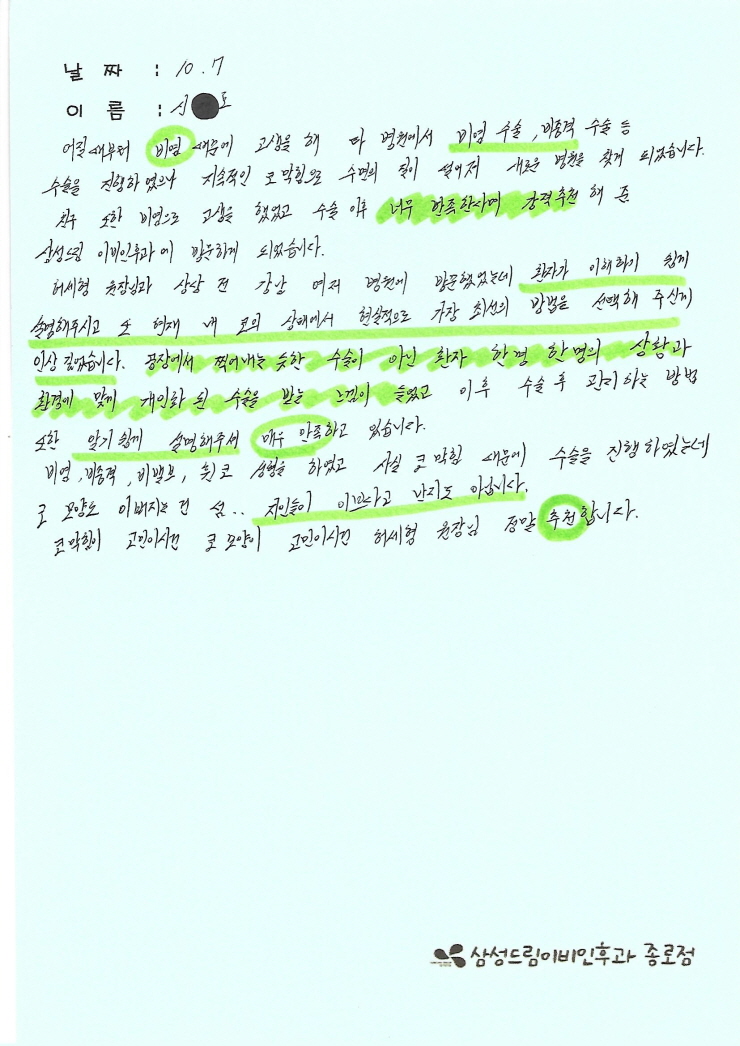 날 짜 : 10.7
이 름 : 시 도
어릴때부터 비염 때문에 고생을 해 타 병원에서 비염 수술, 비중격 수술 등
수술을 진행하였으나 지속적인 코막힘으로 수면의 질이 떨어져 새로운 병원을 찾게 되었습니다.
친구 또한 비염으로 고생을 했었고 수술 이후 너무 만족한다며 강력추천 해 준
삼성드림 이비인후과에 방문하게 되었습니다.
허세형 원장님과 상담 전 강남 여러 병원에 방문했었는데 환자가 이해하기 쉽게
설명해주시고 또 현재 내 코의 상태에서 현실적으로 가장 최선의 방법을 선택해 주신게
인상 깊었습니다. 공장에서 찍어내는 듯한 수술이 아닌 환자 한명 한명의 상황과
환경에 맞게 개인화 된 수술을 받는 느낌이 들었고 이후 수술 후 관리하는 방법
또한 알기 쉽게 설명해주셔 매우 만족하고 있습니다.
비염, 비중격, 비밸브, 휜코 성형을 하였고 사실 코막힘 때문에 수술을 진행하였는데
코 모양도 이뻐지는 건 덤.. 지인들이 이쁘다고 난리도 아닙니다.
코막힘이 고민이시건 코 모양이 고민이시건 허세형 원장님 정말 추천합니다.
삼성드림이비인후과 종로점